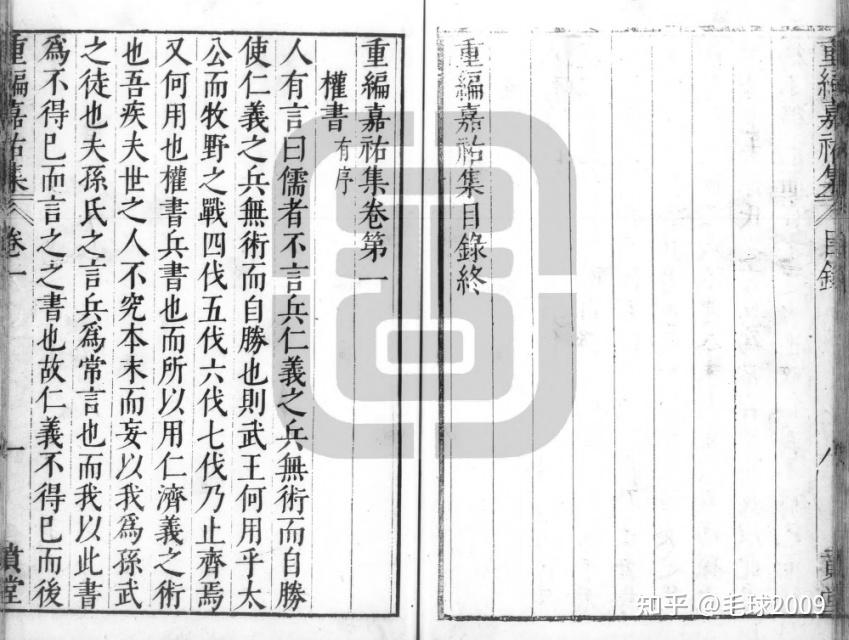 重編嘉祐集目錄
八
重編嘉祐集目錄終
重編嘉祐集卷第一
權書有序
人有言曰儒者不言兵仁義之兵無術而自勝
使仁義之兵無術而自勝也則武王何用乎太
公而牧野之戰四伐五伐六伐七伐乃止齊焉
又何用也權書兵書也而所以用仁濟義之術
也吾疾夫世之人不究本末而妄以我為孫武
之徒也夫孫氏之言兵為常言也而我以此書
為不得已而言之之書也故仁義不得已而後
重編嘉祐集
卷一
一
堂
知乎 @毛球2009